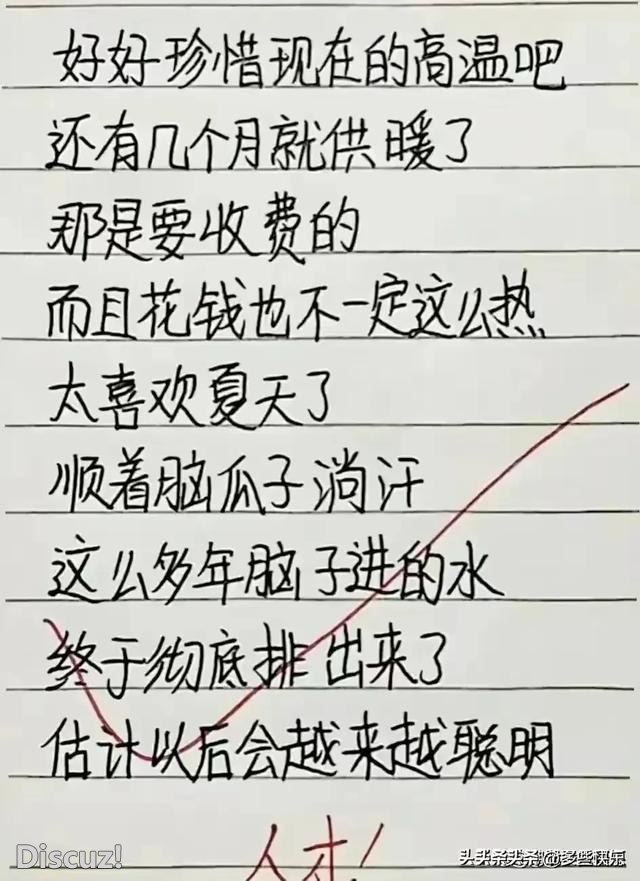 好好珍惜现在的高温吧
还有几个月就供暖了
那是要收费的
而且花钱也不一定这么热
太喜欢夏天了
顺着脑瓜子淌汗
这么多年脑子进的水
终于彻底排出来了
估计以后会越来越聪明
人才!
Discuz!